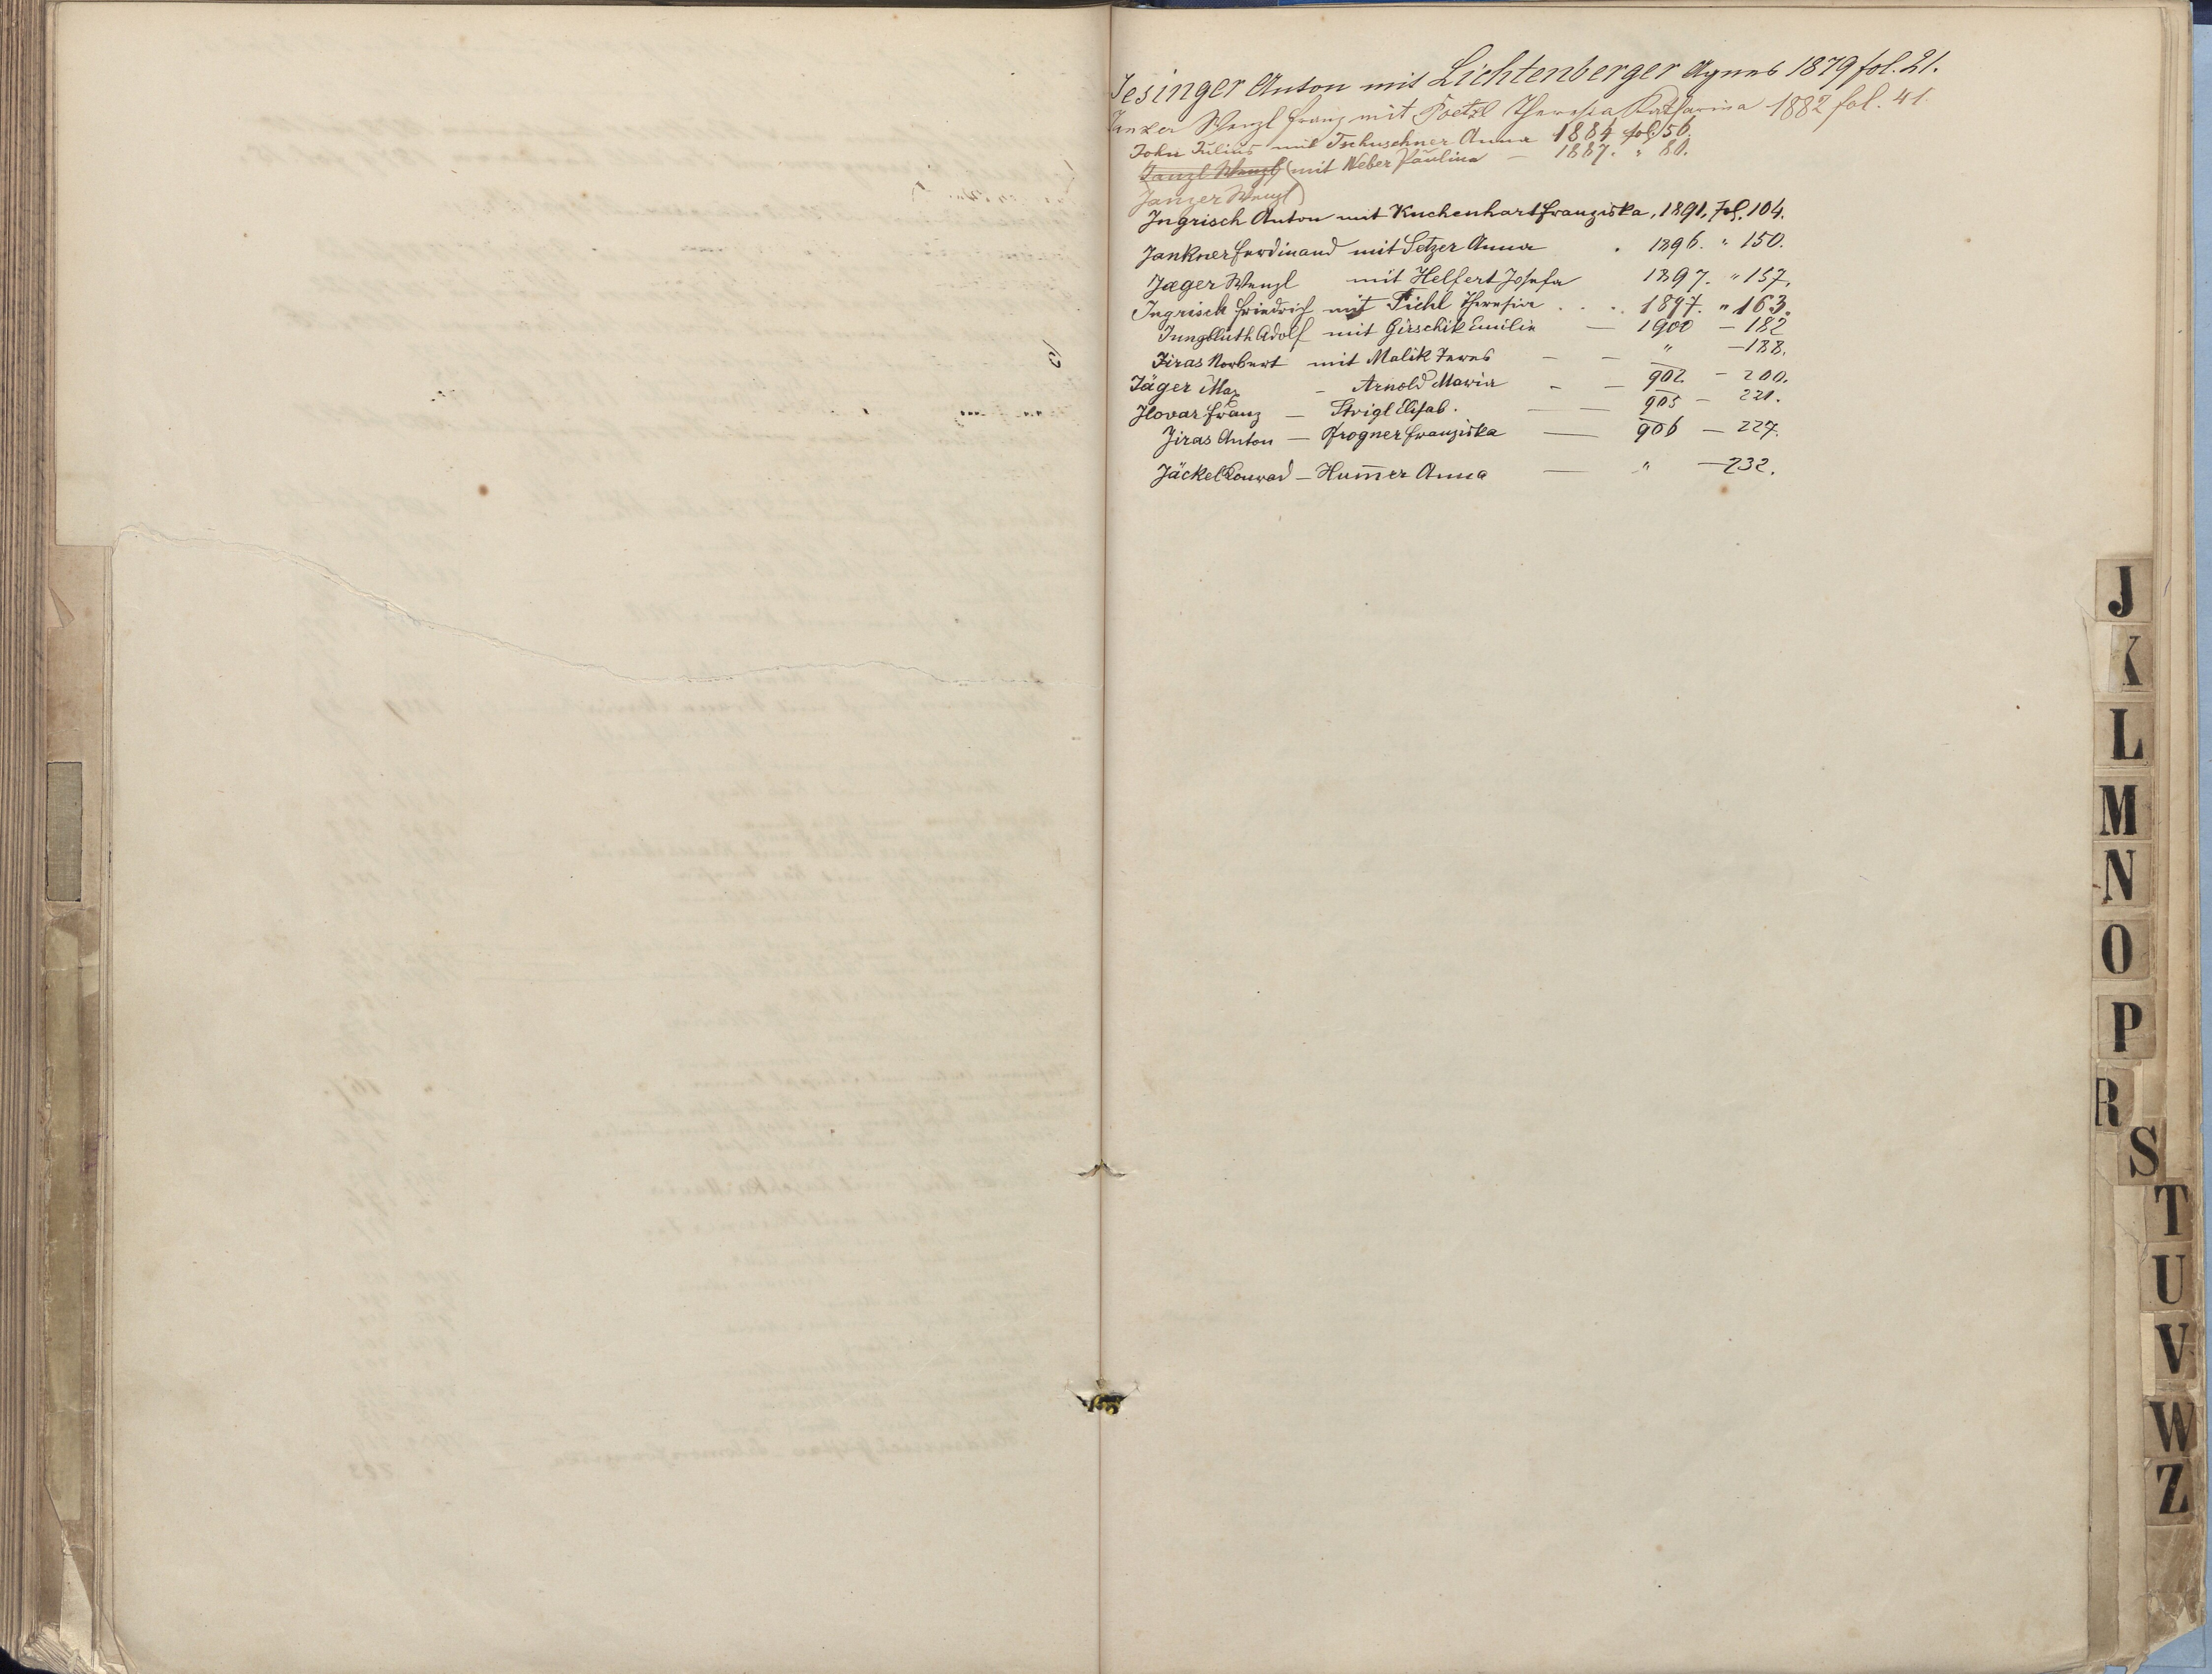 Jesinger Anton mit Lichtenberger Agnes 1879 fol. 21.
Wenzl Franz mit Poetzl Theresia Katharina 1882 fol. 41.
John Julius mit Tschuschner Anna 1884 fol. 56.
Janzl Wenzl (mit Weber Paulina – 1887. " 80.
Janzer Wenzl)
Ingrisch Anton mit Kuchenhart Franziska, 1891, Fol. 104.
Jankner Ferdinand mit Setzer Anna . 1896. " 150.
Jaeger Wenzl mit Helfert Josefa 1897. " 157.
Ingrisch Friedrich mit Pichl Theresia . . . 1897. " 163.
Jungbluth Adolf mit Girschik Emilie — 1900 — 182
Jiras Norbert mit Malik — — " — 188.
Jäger Max – Arnold Maria – — 902. – 200.
Ilovar Franz — Strigl Elisab. — — 905 — 221.
Jiras Anton — Progner Franziska — 906 — 227.
Jäckel Konrad — Hum̄er Anna — " — 232.
J
K
L
M
N
O
P
R
S
T
U
V
W
Z